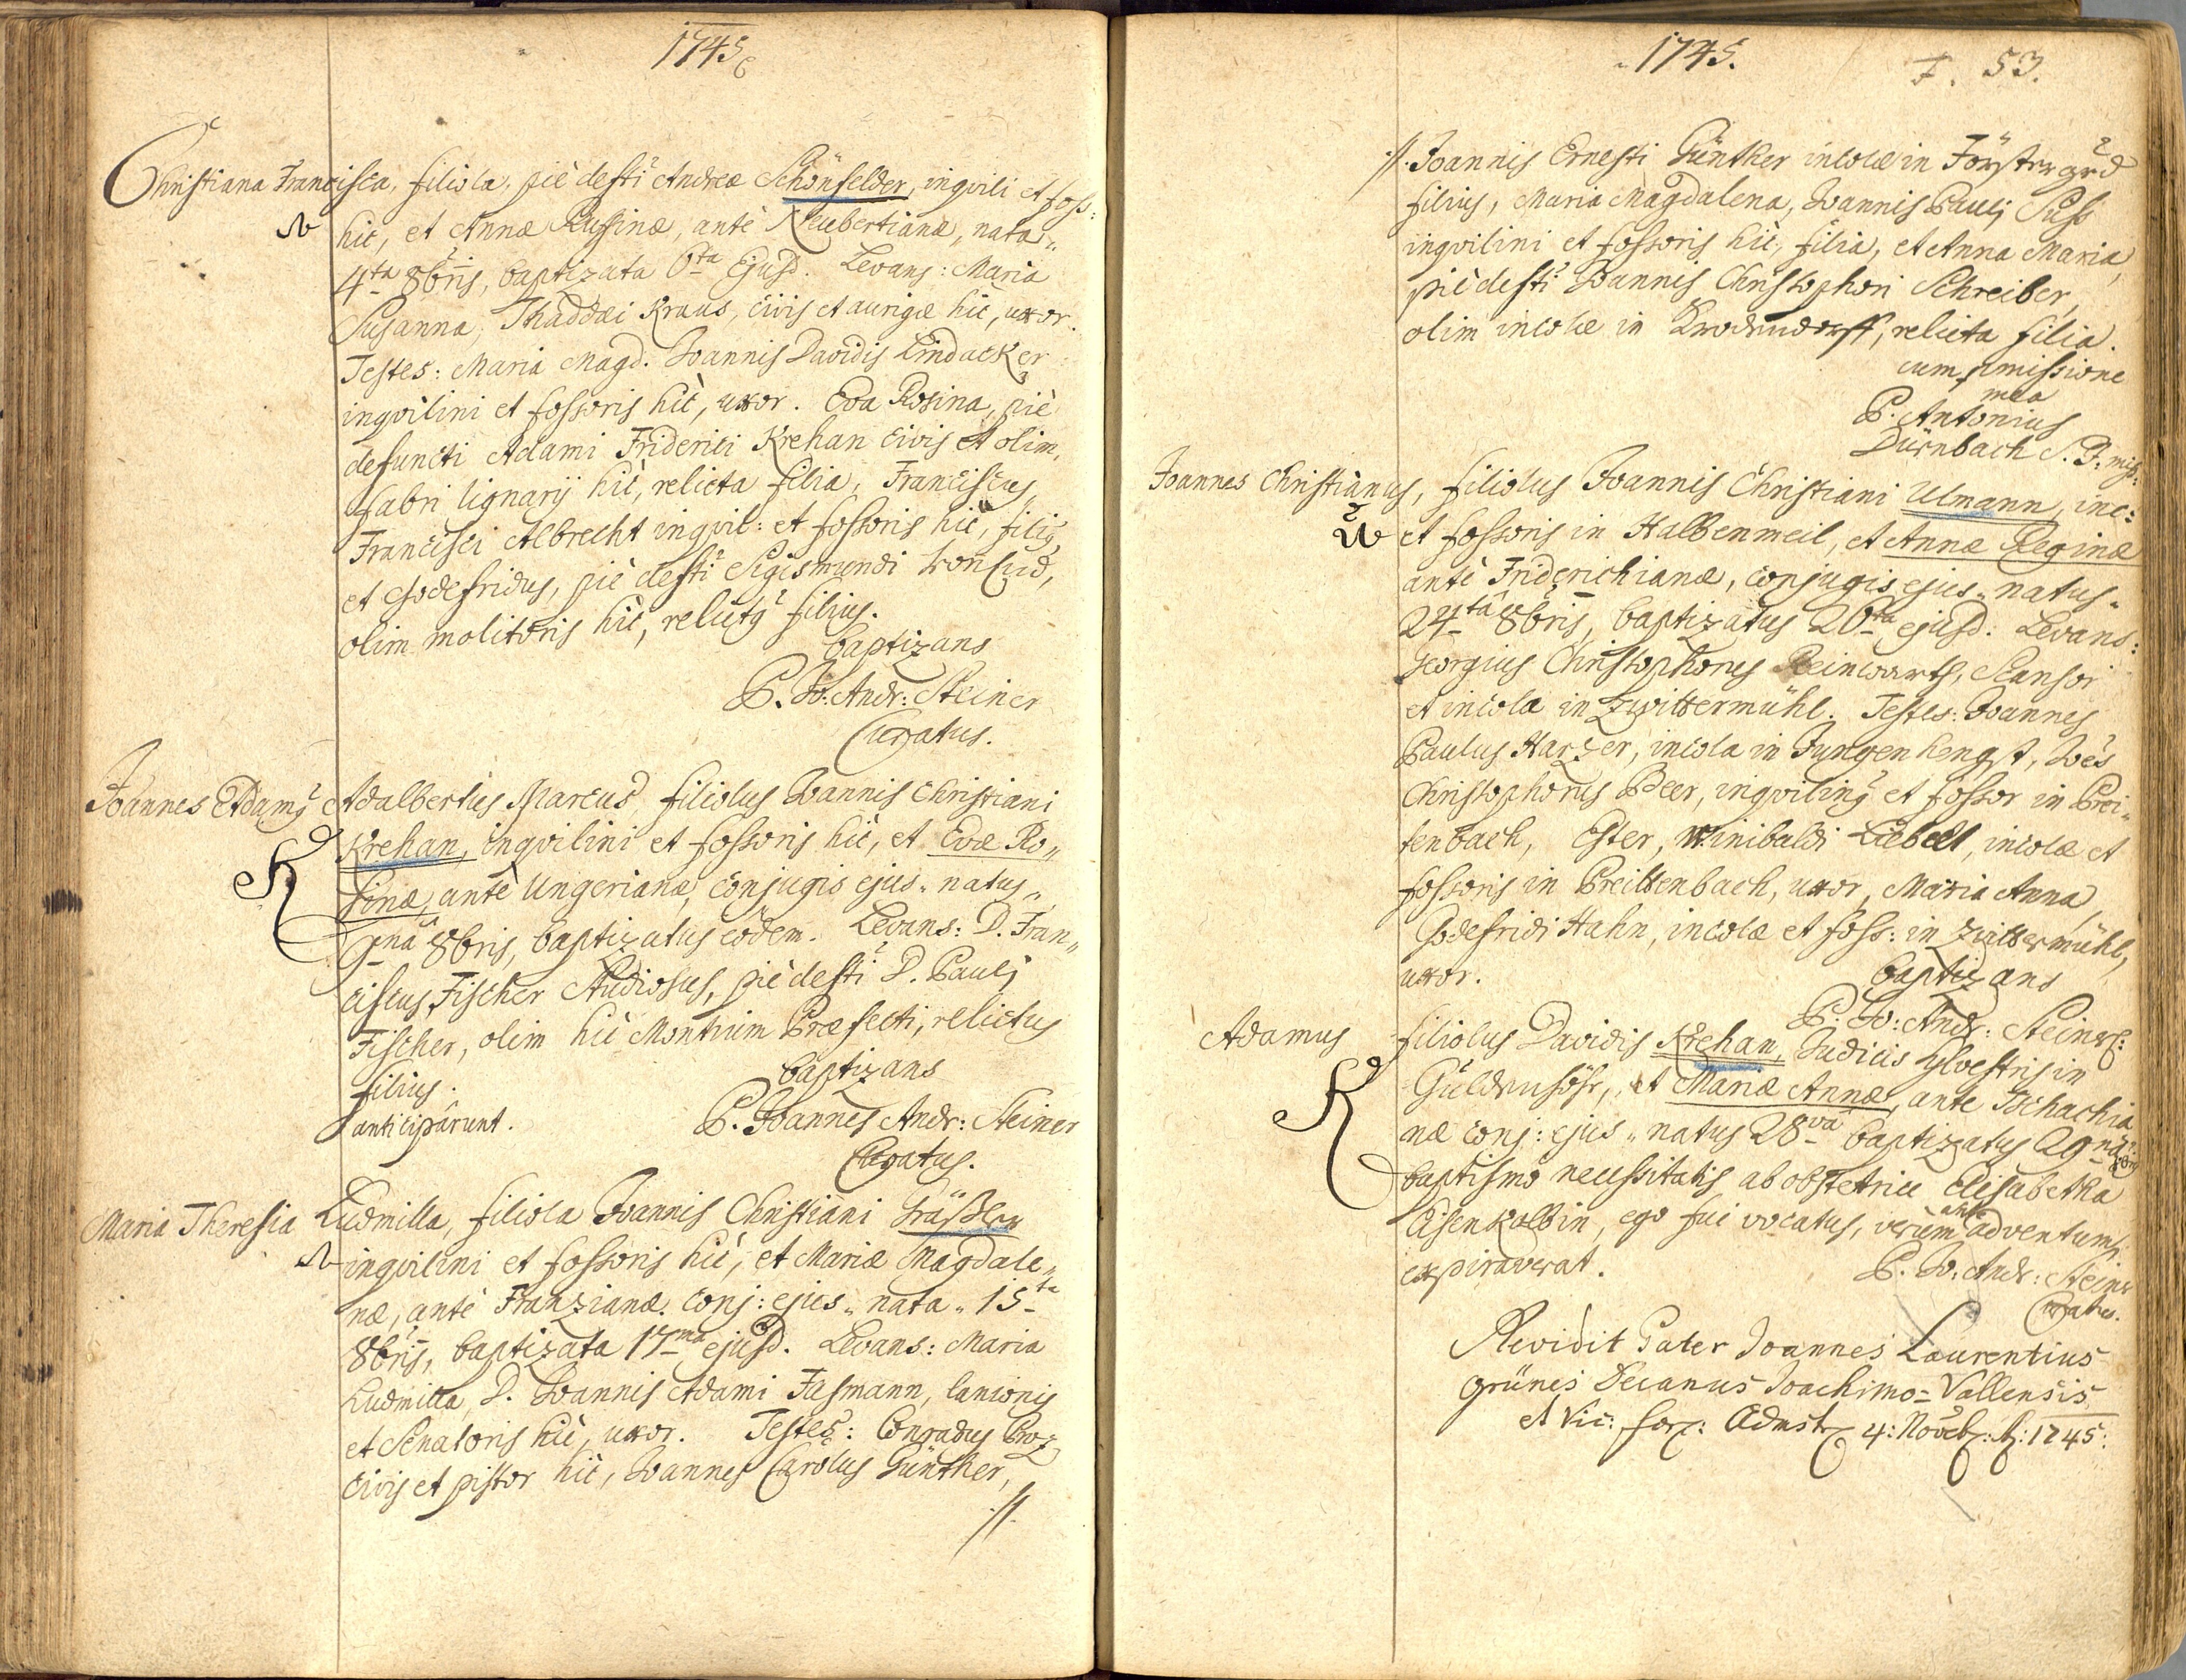 1745
Christiana Francisca, filiola, piè defti Andreæ Schönfelder, inqvili et foss:
hic, et Annæ Rusinæ, antè Neubertianæ, nata„
4ta 8bris, baptizata 6ta Ejusd. Levans: Maria
Susanna, Thaddæi Kraus, civis et aurigæ hic, uxor.
Testes: Maria Magd. Joannis Davidis Lindacker
inqvilini et fossoris hic, uxor. Eva Rosina, piè
defuncti Adami Friderici Krehan civis et olim
fabri lignarij hic, relicta filia, Franciscus,
Francisci Albrecht inqvil: et fossoris hic, filig
et Godefridus, piè defti Sigismundi
olim molitoris hic, relictg filius.
baptizans
P. Jo: Andr: Steiner
Curatus.
Joannes Adamg Adalbertus Marcus filiolus Joannis Christiani
K Krehan, inqvilini et fossoris hic, et Evæ Ro„
sinæ, antè Ungerianæ, conjugis ejus„ natus„
9na 8bris, baptizatus eodem. Levans: D. Fran„
ciscus Fischer Studiosus, piè defti D. Paulj
Fischer, olim hic Montium Præfecti, relictus
filius.
baptizans
anticipârunt.
P. Joannes Andr: Steiner
Curatus.
Maria Theresia Ludmilla, filiola Joannis Christiani Träßler
inqvilini et fossoris hic, et Mariæ Magdale„
næ, antè Franzianæ conj: ejus„ nata„ 15ta
8bris, baptizata 17ma ejusd. Levans: Maria
Ludmilla, D. Joannis Adami Fasmann, lanionis
et Senatoris hic, uxor. Testes: Conradus Proz
civis et pistor hic, Joannes Carolus Günther,
://.
1745. F. 53.
://. Joannis Ernesti Günther incolæ in
filius, Maria Magdalena, Joannis Paulj Süß
inqvilini et fossoris hic, filia, et Anna Maria,
piè defti Joannis Christophori Schreiber,
olim incolæ in relicta filia.
cum pmissione
mea
P. Antonius
Dürnbach S. J. miß:
Joannes Christianus, filiolus Joannis Christiani Ulmann, inc:
U et fossoris in Halbenmeil, et Annæ Reginæ
antè Friderichianæ, conjugis ejus„ natus„
24ta 8bris, baptizatus 26ta ejusd: Levans:
Georgius Christophorus Reinwarth, Scansor
et incola in Zwittermühl. Testes: Joannes
Paulus Harzer, incola in Jungenhengst, Joes
Christophorus Peer, inqviling et fossor in Brei„
tenbach, Ester, Winibaldi Liebelt, incolæ et
fossoris in Breittenbach, uxor, Maria Anna
Godefridi Hahn, incolæ et foss: in Zwittermühl,
uxor.
baptizans
P. Jo: Andr: Steiner C:
Adamus filiolus Davidis Krehan, Judicis sylvestris in
K Güldenhöhe, et Mariæ Annæ, ante Tschachia
næ conj: ejus„ natus 28va baptizatus 29na
baptismo necessitatis ab obstetrice Elisabetha
Eisenkolbin, ego fui vocatus, verùm ante adventum
expiraverat.
P. Jo: Andr: Steiner
Curatus.
Revidit Pater Joannes Laurentius
Grünes Decanus Joachimo-Vallensis
et Vic: for: Admst 4: Novebr: A: 1745: